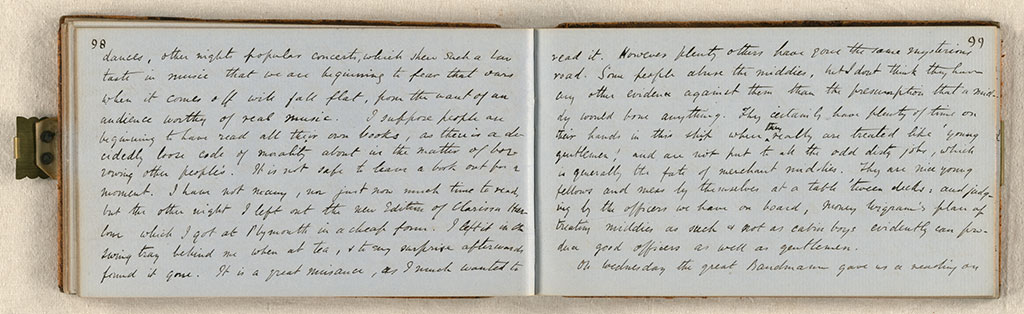 98
dances, other night popular concerts, which shew such a low
taste in music that we are beginning to fear that ours
when it comes off will fall flat, from the want of an
audience worthy of real music. I suppose people are
beginning to have read all their own books, as there is a de-
cidedly loose code of morality about in the matter of bor-
rowing other people's. It is not safe to leave a book out for a
moment. I have not many, nor just now much time to read
but the other night I left out the new Edition of Clarissa Har-
lowe which I got at Plymouth in a cheap form. I left it in the
swing tray behind me when at tea, & to my surprise afterwards
found it gone. It is a great nuisance, as I much wanted to
99
read it. However plenty others have gone the same mysterious
road. Some people abuse the middies, but I dont think they have
any other evidence against them than the presumption that a mid-
dy would bone anything. They certainly have plenty of time on
their hands in this ship when they really are treated like 'young
gentlemen', and are not put to all the odd dirty jobs, which
is generally the fate of merchant middies. They are nice young
fellows and mess by themselves at a table 'tween decks; and judg-
ing by the officers we have on board, Money Wigram's plan of
treating middies as such & not as cabin boys evidently can pro-
duce good officers as well as gentlemen.
On Wednesday the great Bandmann gave us a reading on